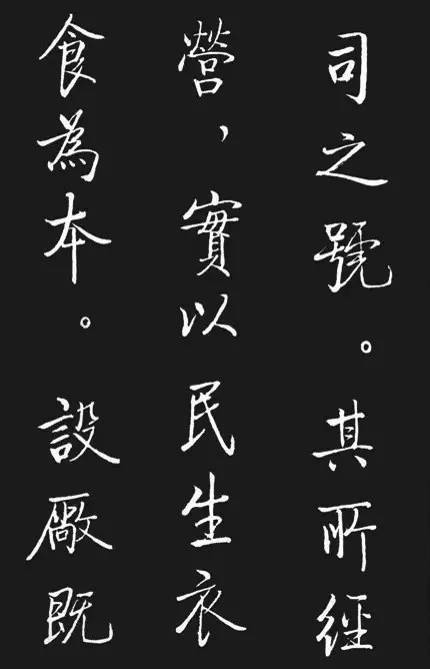 司之號。其所經
營，實以民生衣
食為本。設廠既